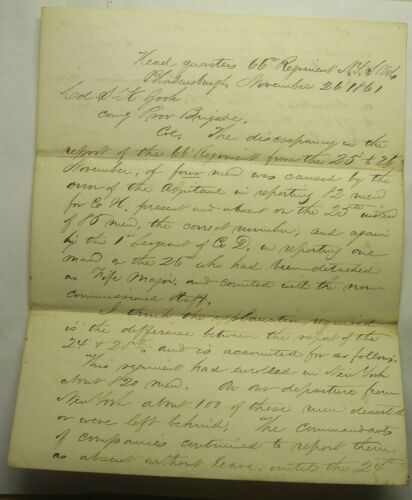 Head quarters 66th Regiment N.Y.S. Vols.
Bladensburgh, November 26 1861
Col.
Comg Prov Brigade,
Col, The discrepancy in the
report of the 66th Regiment from the 25th & 26
November, of four men was caused by the
error of the Adjutant in reporting 82 men
for Co H, present and absent on the 25th instead
of 85 men, the correct number; and again
by the 1st Sergeant of Co D, in reporting one
man on the 26th who had been detached
as Fife Major, and counted with the non-
commissioned Staff.
I think the explanation required
is the difference between the report of the
24th & 25th, and is accounted for as follows.
This regiment had enrolled in New York
about 820 men. On our departure from
New York about 100 of these men deserted
or were left behind; The commandants
of companies continued to report them
as absent without leave, until the 24th